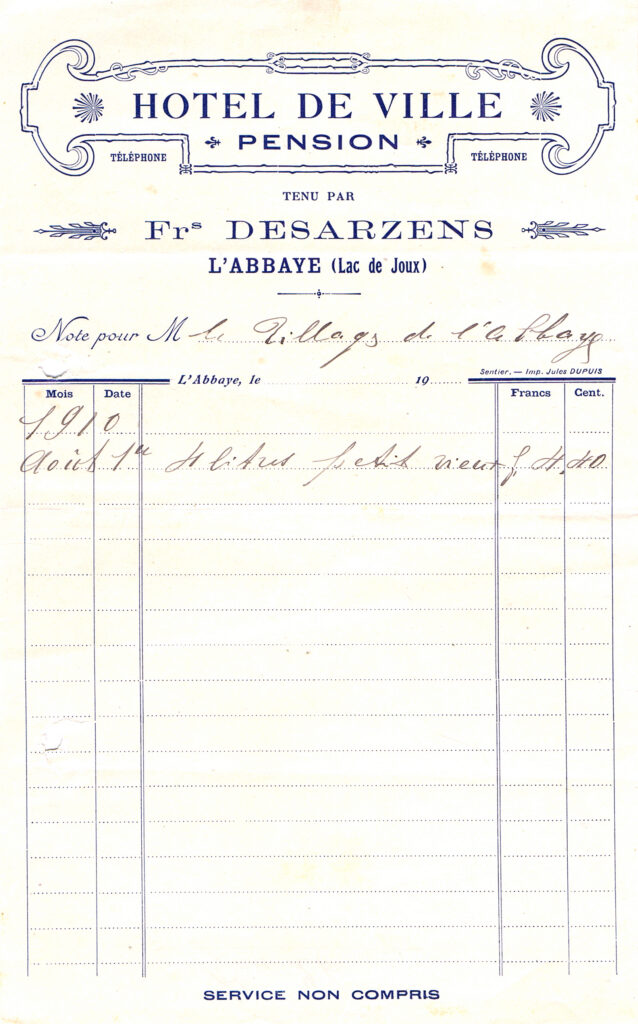 HOTEL DE VILLE
PENSION
TÉLÉPHONE TÉLÉPHONE
TENU PAR
Frs DESARZENS
L'ABBAYE (Lac de Joux)
Note pour M le Village de l'Abbaye
Sentier. — Imp. Jules DUPUIS
L'Abbaye, le 19
Mois Date Francs Cent.
1910
Août 1er 4 litres petit vieux f. 4,40
SERVICE NON COMPRIS